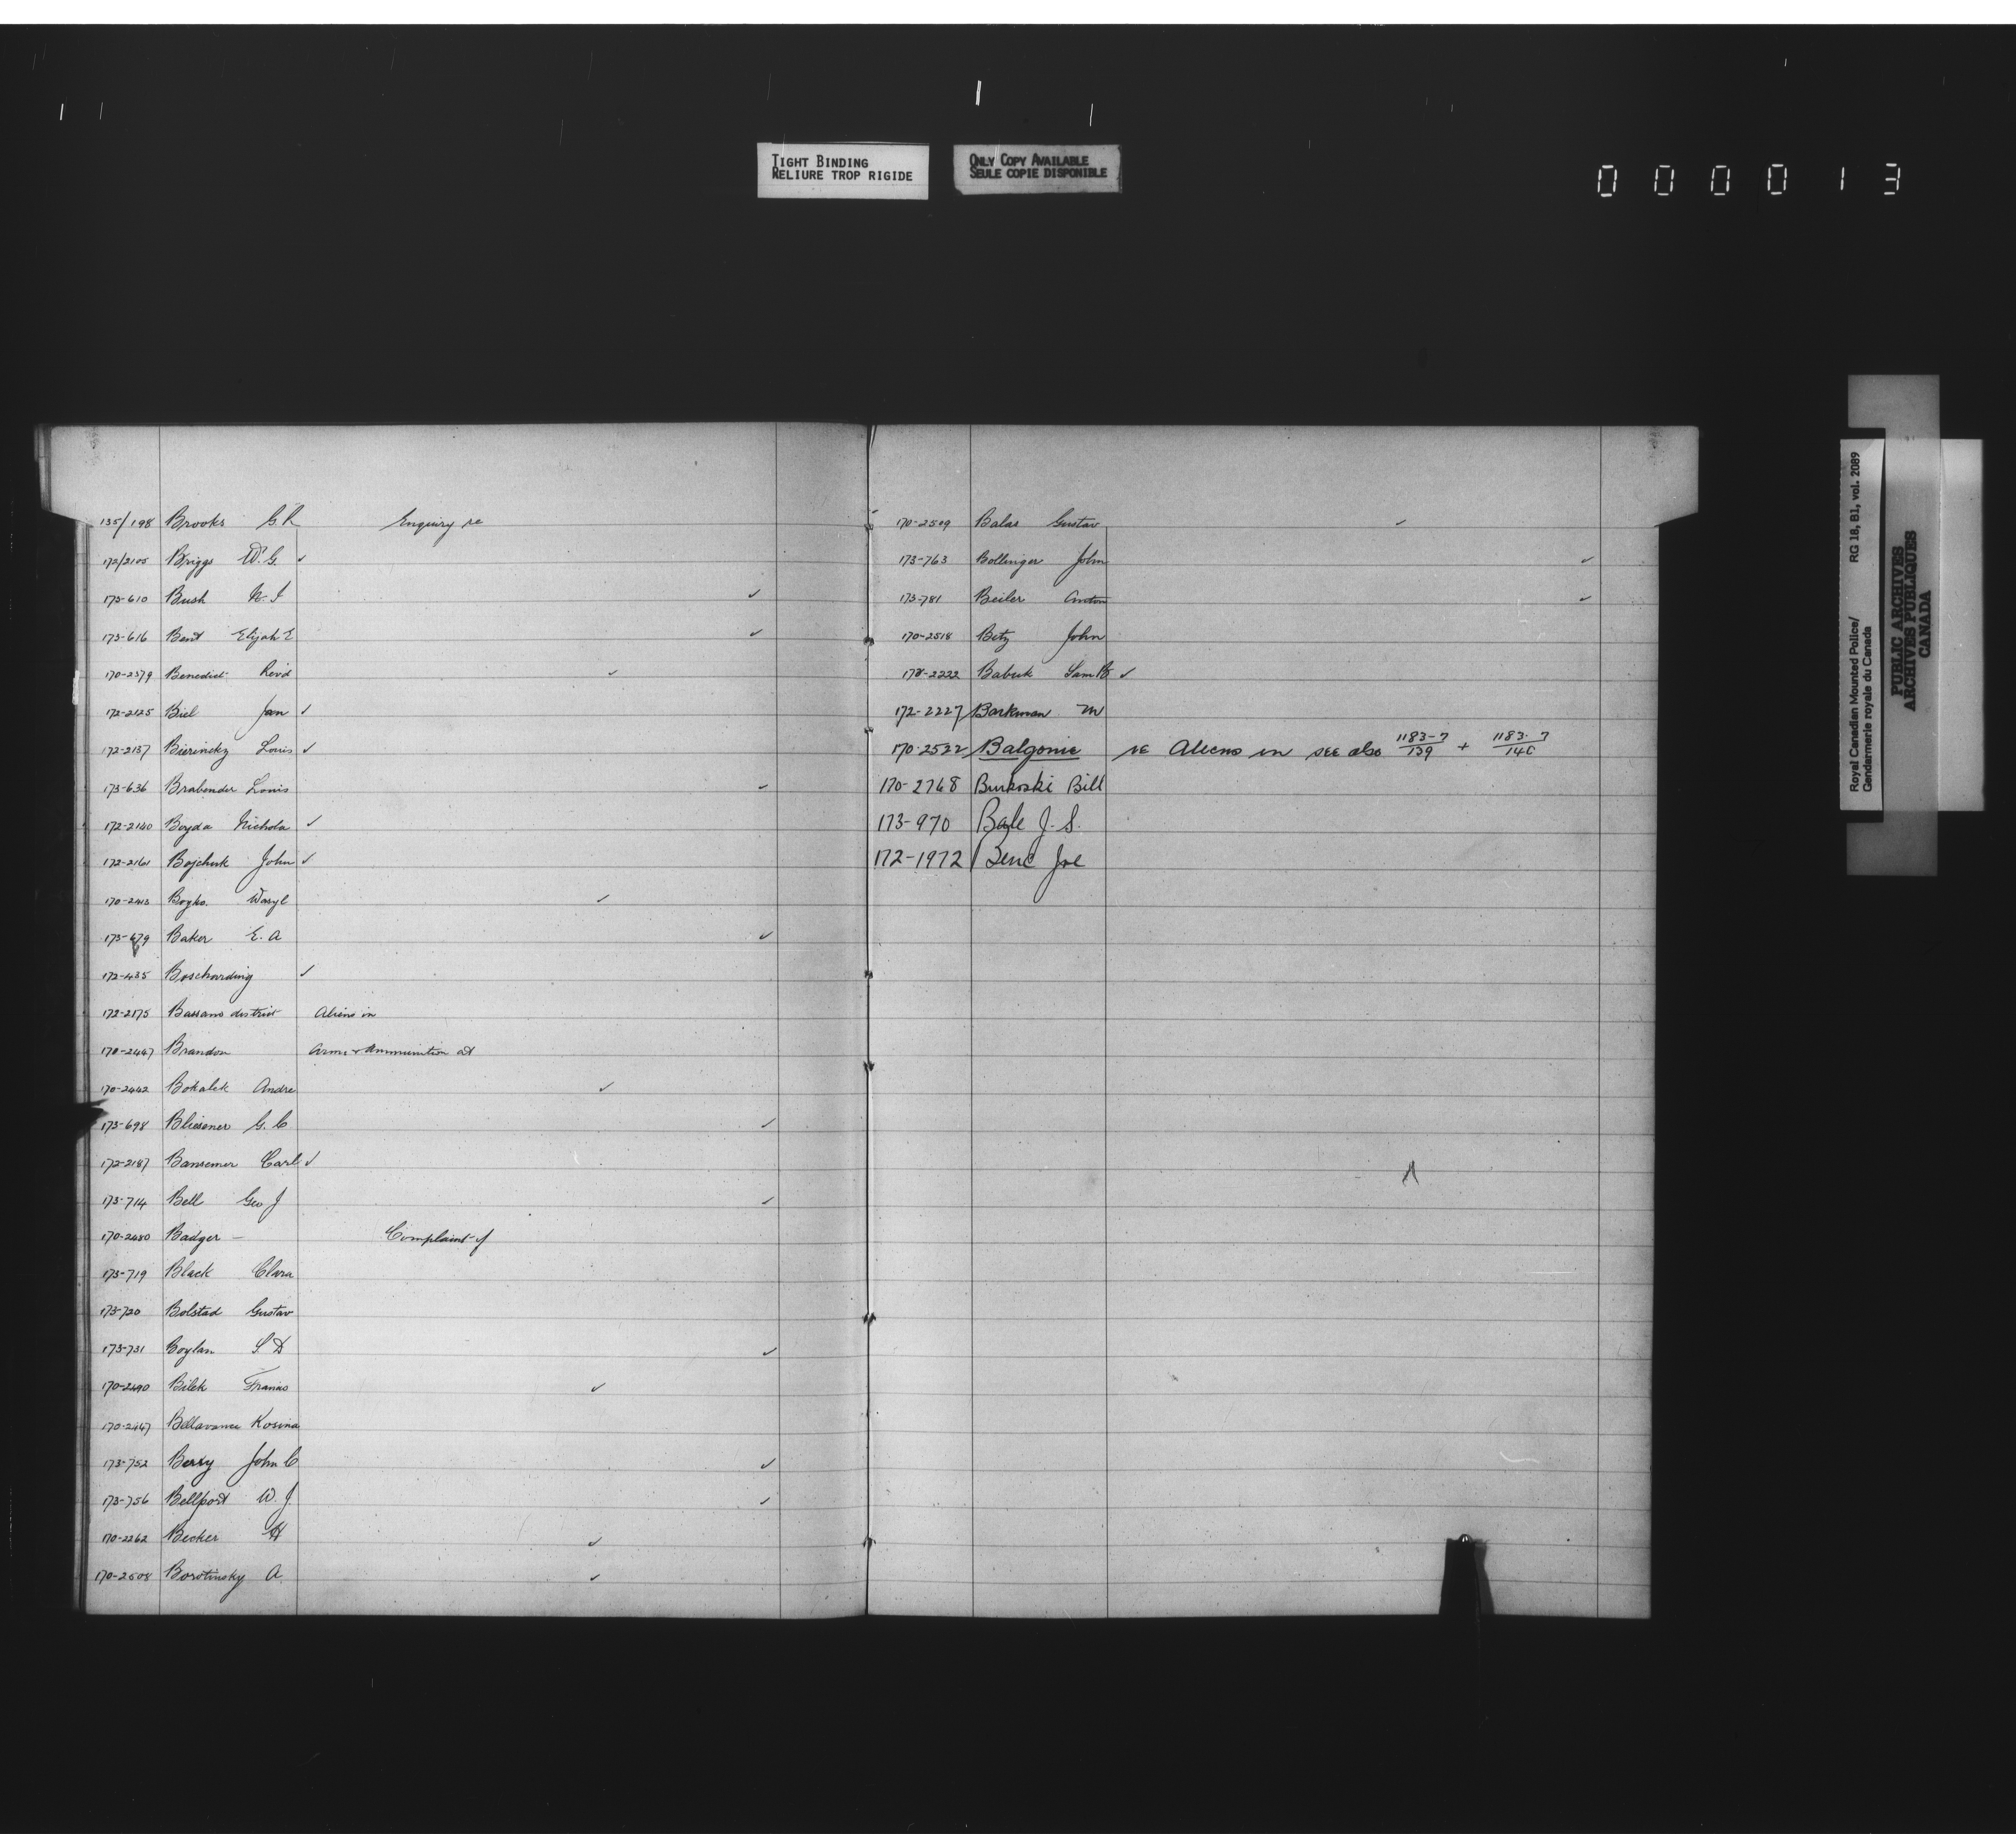 TIGHT BINDING
RELIURE TROP RIGIDE
ONLY COPY AVAILABLE
SEULE COPIE DISPONIBLE
000013
135/198 Brooks G.R Enquiry re
172/2105 Briggs W.G. ✓
173-610 Bush N. I ✓
173-616 Bent Elijah E ✓
170-2379 Benedict Rev'd ✓
172-2125 Biel Jan ✓
172-2137 Bierinsky Louis ✓
173-636 Brabender Louis ✓
172-2140 Boyda Nichola ✓
172-2161 Bojchuk John ✓
170-2413 Boyko. Wasyl ✓
173-679 Baker E. A ✓
172-435 Boscharding ✓
172-2175 Bassano district Aliens in
170-2447 Brandon Arms & Ammunition at
170-2442 Bokalek Andre ✓
173-698 Bliesener G. C ✓
172-2187 Bansemer Carl ✓
173-714 Bell Geo J ✓
170-2480 Badger — Complaint of
173-719 Black Clara
173-720 Bolstad Gustav
173-731 Boylan S. D ✓
170-2490 Bilek Franio ✓
170-2447 Bellavance Rosina
173-752 Berry John C ✓
173-756 Bellport W. J. ✓
170-2262 Becker H ✓
170-2508 Borotinsky A ✓
170-2509 Balas Gustav ✓
173-763 Bollinger John ✓
173-781 Beiler Anton ✓
170-2518 Betz John
172-2222 Babuk Sam ✓
172-2227 Barkman M
170-2522 Balgonie re Aliens in see also 1183-7/139 + 1183-7/140
170-2768 Burkoski Bill
173-970 Bale J. S.
172-1972 Benc Joe
Royal Canadian Mounted Police/ RG 18, B1, vol. 2089
Gendarmerie royale du Canada
PUBLIC ARCHIVES
ARCHIVES PUBLIQUES
CANADA